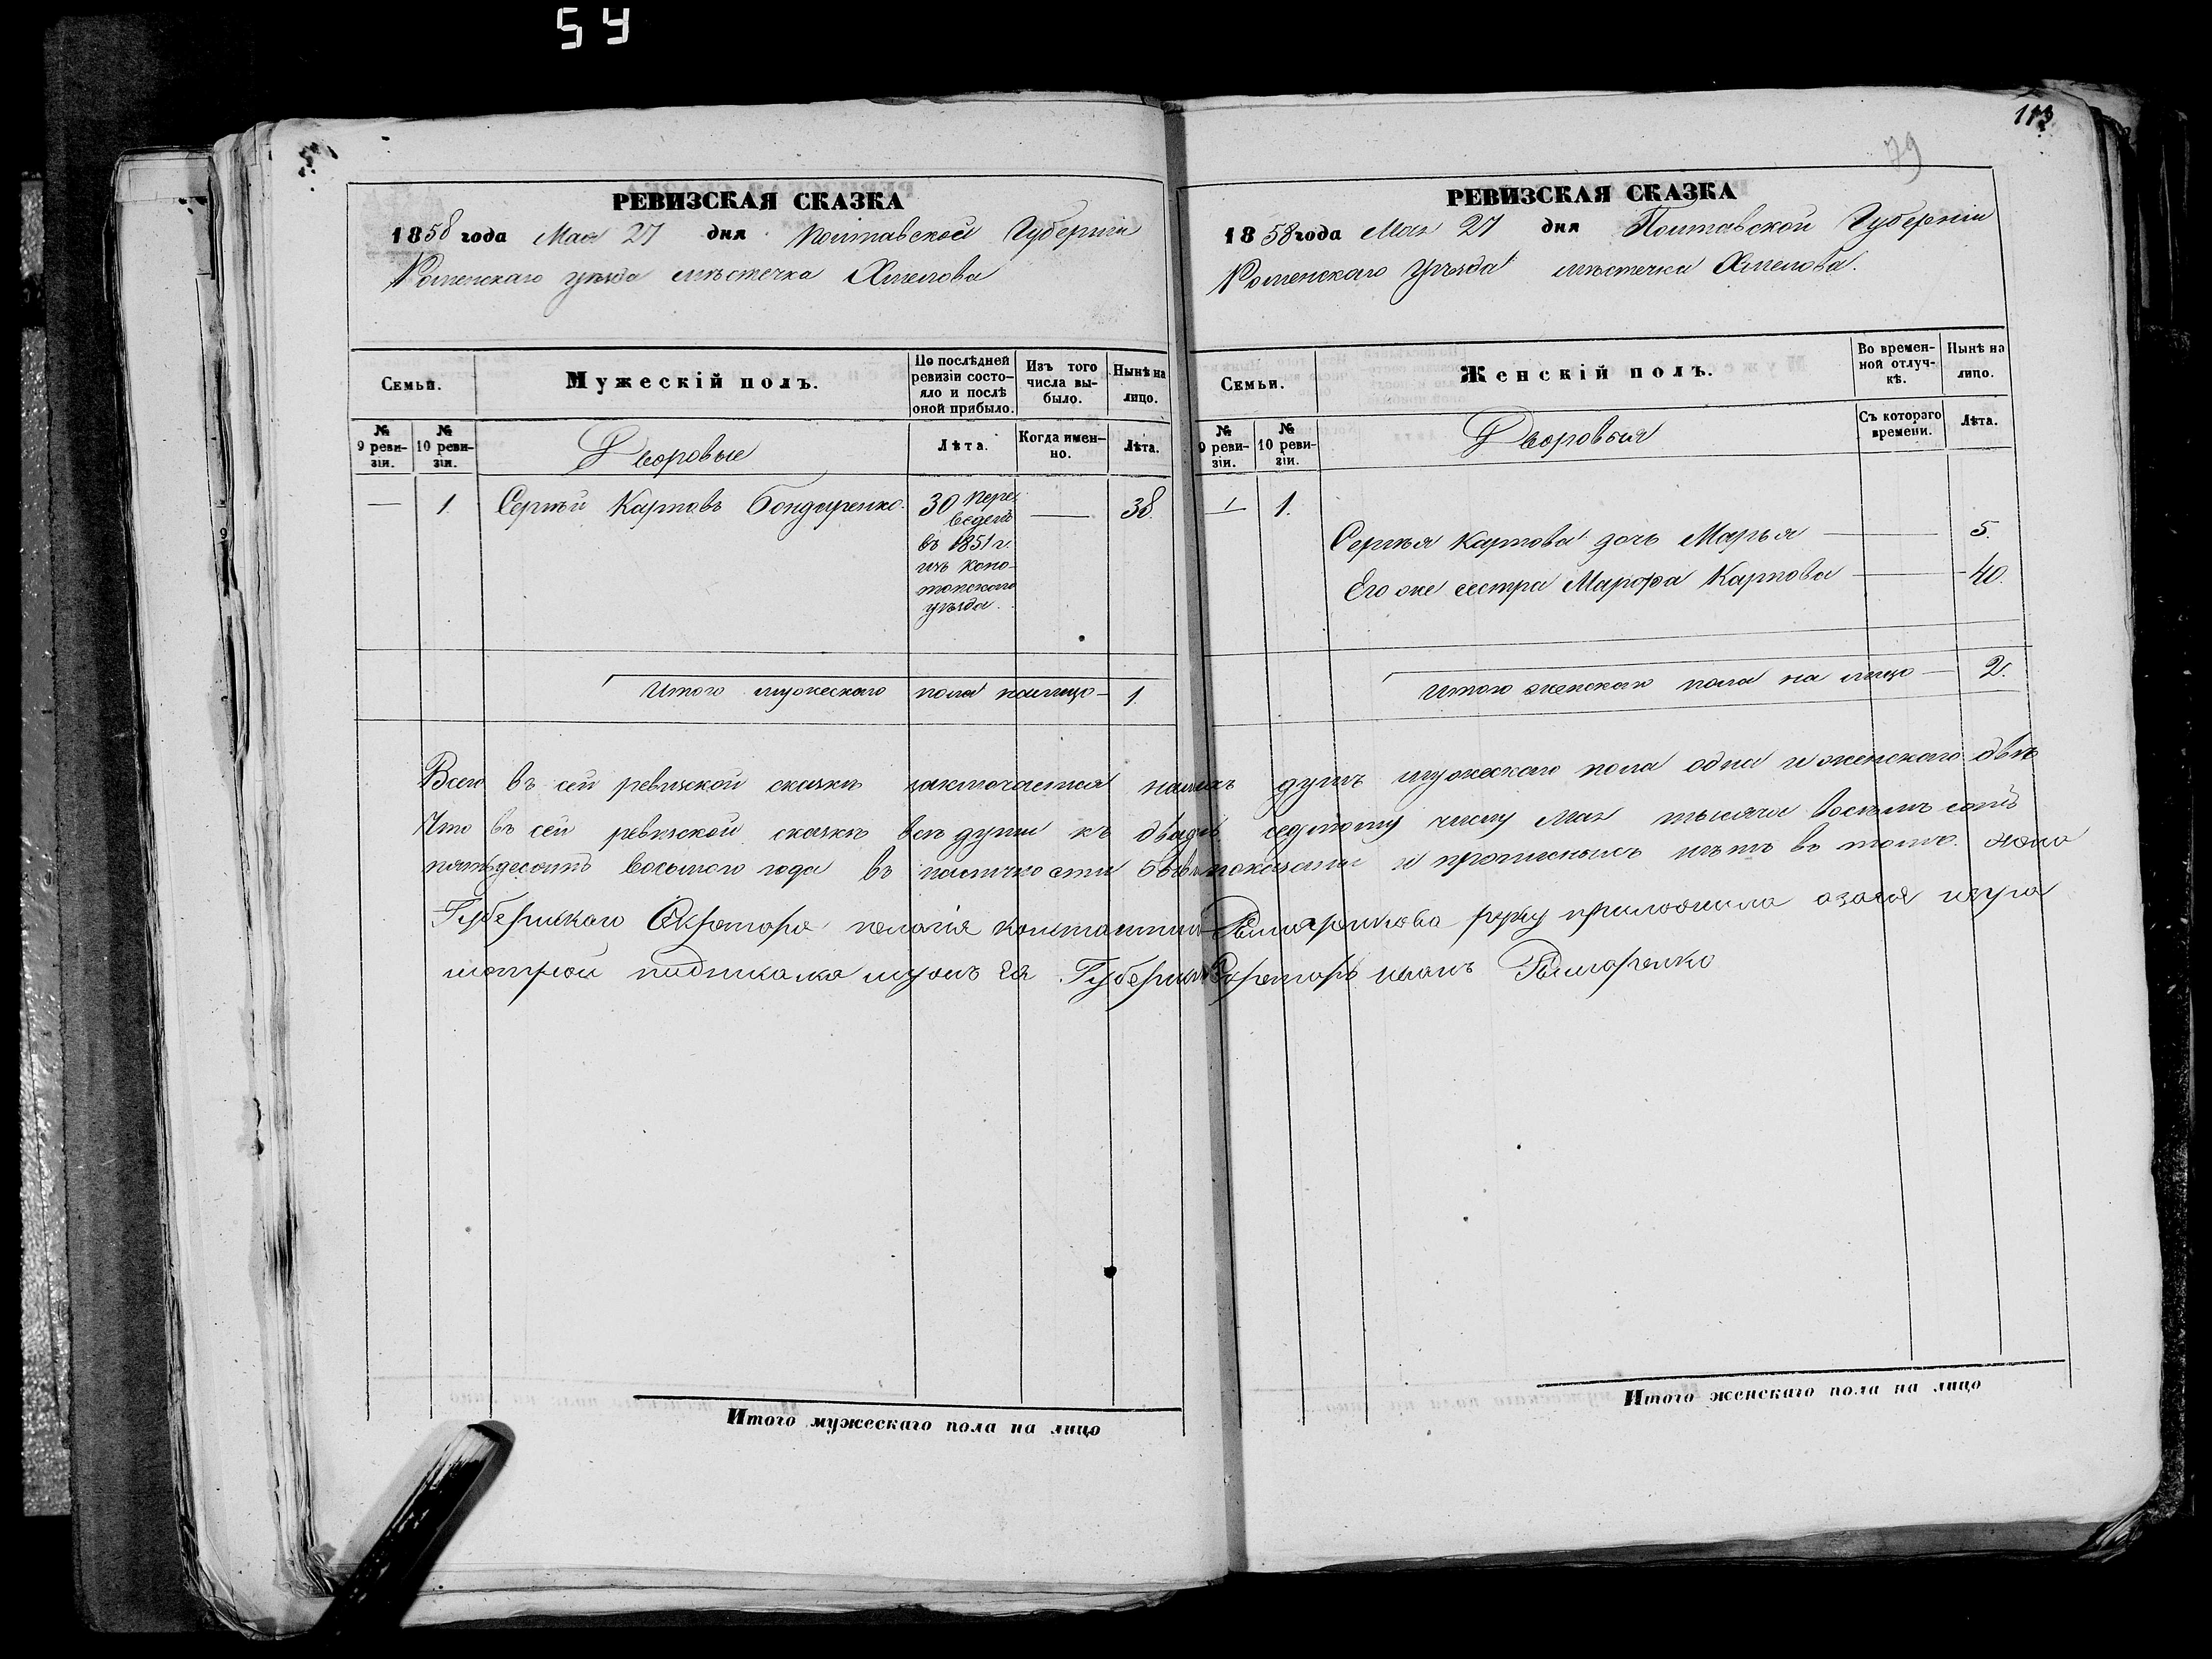 54
113
79
РЕВИЗСКАЯ СКАЗКА
1858 года Мая 27 дня Полтавской Губерніи
Роменскаго уѣзда мѣстечка Хмелова
Семьи.
Мужескій полъ.
По послѣдней ревизіи состояло и послѣ оной прибыло.
Изъ того числа выбыло.
Нынѣ на лицо.
№ 9 ревизіи.
№ 10 ревизіи.
Дворовые
Лѣта.
Когда именно.
Лѣта.
— 1. Сергѣй Карповъ Бондаренко. 30 пере- — 38.
веденъ
въ 1851 г.
изъ Коно-
топскаго
уѣзда.
Итого мужескаго пола налицо — 1.
РЕВИЗСКАЯ СКАЗКА
1858 года Мая 27 дня Полтавской Губерніи
Роменскаго Уѣзда мѣстечка Хмелова.
Семьи.
Женскій полъ.
Во временной отлучкѣ.
Нынѣ на лицо.
№ 9 ревизіи.
№ 10 ревизіи.
Дворовыя
Съ котораго времени.
Лѣта.
1.
Сергѣя Карпова дочь Марья — 5.
Его же сестра Марфа Карпова — 40.
Итого женскаго пола на лицо — 2.
Всего въ сей ревизской сказкѣ заключается душъ мужескаго пола одна и женскаго двѣ
Что въ сей ревизской сказкѣ всѣ души къ седьмому числу Мая тысяча восемь сотъ
пятьдесятъ восьмого года въ наличности показаны и прописныхъ нѣтъ въ томъ жена
Губернскаго Секретаря Пелагія руку приложила а за ея
подписалъ мужъ ея Губернскій Секретарь Иванъ
Итого мужескаго пола на лицо
Итого женскаго пола на лицо